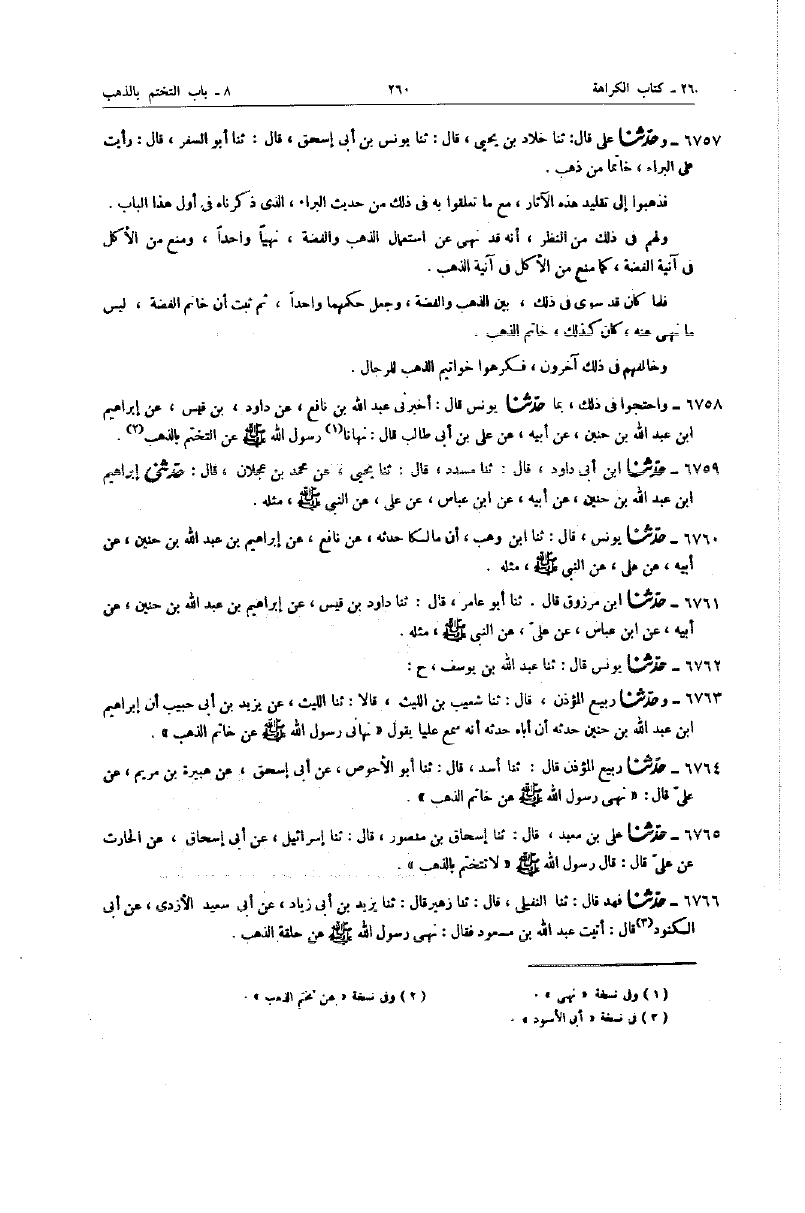 ٢٦ - كتاب الكراهة ٢٦٠ ٨ - باب التختم بالذهب
٦٧٥٧ - وحدثنا على قال: ثنا خلاد بن يحيى ، قال : ثنا يونس بن أبى إسحق ، قال : ثنا أبو السفر ، قال : رأيت
على البراء ، خاتما من ذهب .
فذهبوا إلى تقليد هذه الآثار ، مع ما تعلقوا به فى ذلك من حديث البراء ، الذى ذكرناه فى أول هذا الباب .
ولهم فى ذلك من النظر ، أنه قد نهى عن استعمال الذهب والفضة ، نهياً واحداً ، ومنع من الأكل
فى آنية الفضة ، كما منع من الأكل فى آنية الذهب .
فلما كان قد سوى فى ذلك ، بين الذهب والفضة ، وجعل حكمهما واحداً ، ثم ثبت أن خاتم الفضة ، ليس
ما نهى عنه ، كان كذلك ، خاتم الذهب .
وخالفهم فى ذلك آخرون ، فكرهوا خواتيم الذهب للرجال .
٦٧٥٨ - واحتجوا فى ذلك ، بما حدثنا يونس قال : أخبرنى عبد الله بن نافع ، عن داود ، بن قيس ، عن إبراهيم
ابن عبد الله بن حنين ، عن أبيه ، عن على بن أبى طالب قال : نهانا(١) رسول الله ﷺ عن التختم بالذهب(٢) .
٦٧٥٩ - حدثنا ابن أبى داود ، قال : ثنا مسدد ، قال : ثنا يحيى ، عن محمد بن عجلان ، قال : حدثنى إبراهيم
ابن عبد الله بن حنين ، عن أبيه ، عن ابن عباس ، عن على ، عن النبى ﷺ ، مثله .
٦٧٦٠ - حدثنا يونس ، قال : ثنا ابن وهب ، أن مالكا حدثه ، عن نافع ، عن إبراهيم بن عبد الله بن حنين ، عن
أبيه ، عن على ، عن النبى ﷺ ، مثله .
٦٧٦١ - حدثنا ابن مرزوق قال . ثنا أبو عامر ، قال : ثنا داود بن قيس ، عن إبراهيم بن عبد الله بن حنين ، عن
أبيه ، عن ابن عباس ، عن علىّ ، عن النبى ﷺ ، مثله .
٦٧٦٢ - حدثنا يونس قال : ثنا عبد الله بن يوسف ، ح :
٦٧٦٣ - وحدثنا ربيع المؤذن ، قال : ثنا شعيب بن الليث ، قالا : ثنا الليث ، عن يزيد بن أبى حبيب أن إبراهيم
ابن عبد الله بن حنين حدثه أن أباه حدثه أنه سمع عليا يقول « نهانى رسول الله ﷺ عن خاتم الذهب » .
٦٧٦٤ - حدثنا ربيع المؤذن قال : ثنا أسد ، قال : ثنا أبو الأحوص ، عن أبى إسحق ، عن هبيرة بن مريم ، عن
علىّ قال : « نهى رسول الله ﷺ عن خاتم الذهب » .
٦٧٦٥ - حدثنا على بن معبد ، قال : ثنا إسحاق بن منصور ، قال : ثنا إسرائيل ، عن أبى إسحاق ، عن الحارث
عن علىّ قال : قال رسول الله ﷺ « لا تتختم بالذهب » .
٦٧٦٦ - حدثنا فهد قال : ثنا النفيلى ، قال : ثنا زهير قال : ثنا يزيد بن أبى زياد ، عن أبى سعيد الأزدى ، عن أبى
الكنود(٣) قال : أتيت عبد الله بن مسعود فقال : نهى رسول الله ﷺ عن حلقة الذهب .
(١) وفى نسخة « نهى » . (٢) وفى نسخة « عن تختم الذهب » .
(٣) فى نسخة « أبى الأسود » .